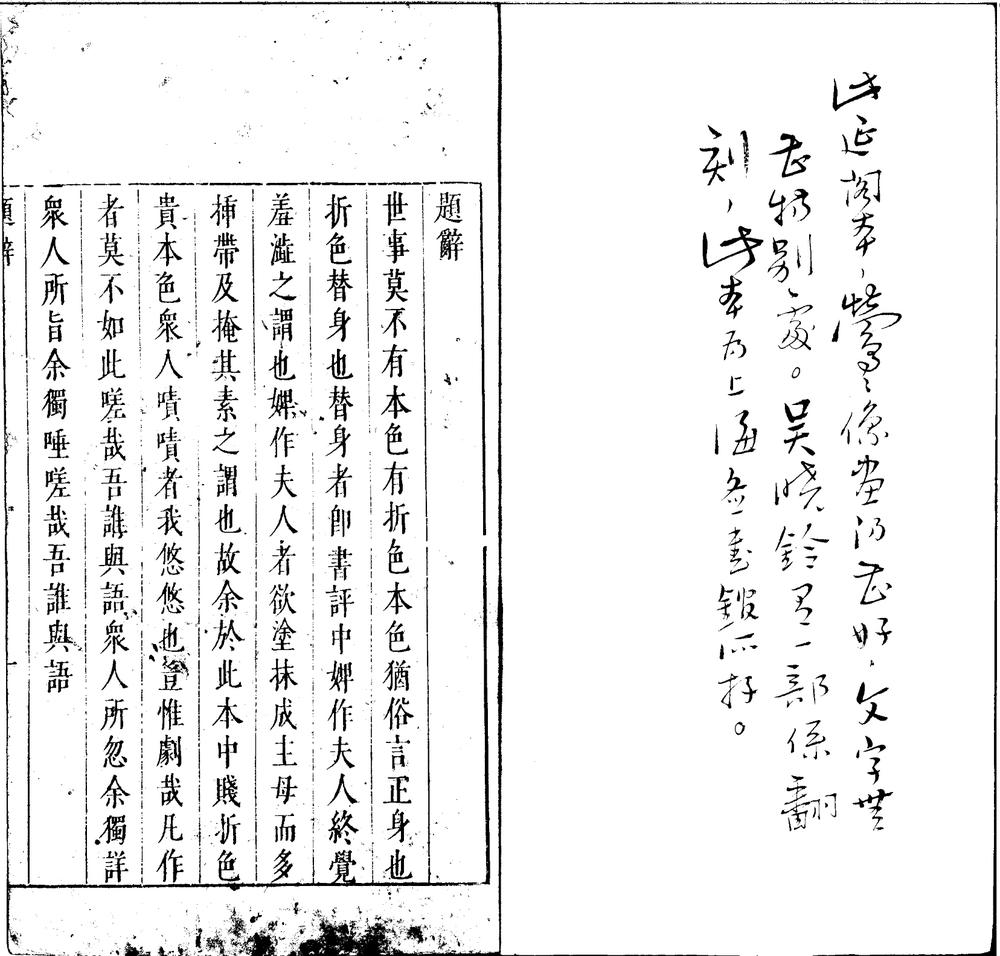 此延阁本，鶯〻像畫仍甚好，文字無
甚特别處。吴晓鈴有一部係翻
刻，此本为上海書所存。
題辭
世事莫不有本色有折色本色猶俗言正身也
折色替身也替身者卽書評中婢作夫人終覺
羞澁之謂也婢作夫人者欲塗抹成主母而多
揷帶及掩其素之謂也故余於此本中賤折色
貴本色衆人嘖嘖者我悠悠也豈惟劇哉凡作
者莫不如此嗟哉吾誰與語衆人所忽余獨詳
衆人所旨余獨唾嗟哉吾誰與語
題辭 一